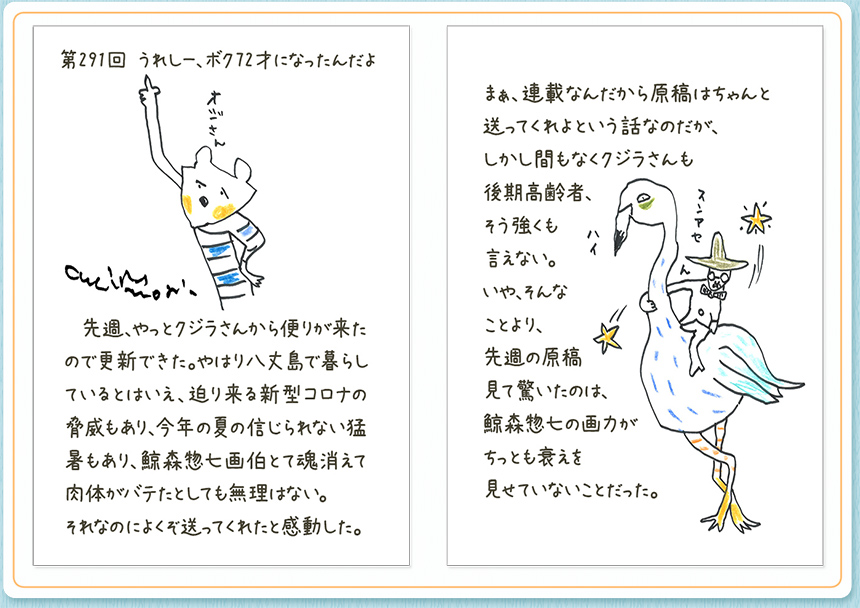 第291回 うれしー、ボク72才になったんだよ
オジさん
先週、やっとクジラさんから便りが来た
ので更新できた。やはり八丈島で暮らし
ているとはいえ、迫り来る新型コロナの
脅威もあり、今年の夏の信じられない猛
暑もあり、鯨森惣七画伯とて魂消えて
肉体がバテたとしても無理はない。
それなのによくぞ送ってくれたと感動した。
まぁ、連載なんだから原稿はちゃんと
送ってくれよという話なのだが、
しかし間もなくクジラさんも
後期高齢者、
そう強くも
言えない。
いや、そんな
ことより、
先週の原稿
見て驚いたのは、
鯨森惣七の画力が
ちっとも衰えを
見せていないことだった。
ハイ